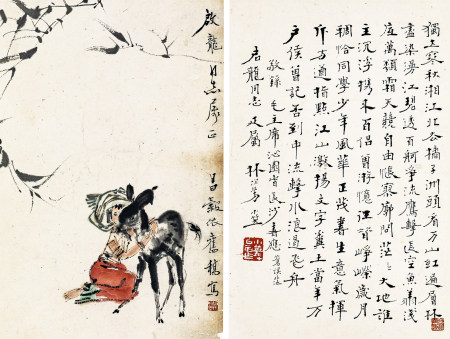 獨立寒秋湘江北去橘子洲頭看萬山紅遍層林
盡染漫江碧透百舸爭流鷹擊長空魚翔淺
底萬類霜天競自由悵寥廓問茫茫大地誰
主沉浮攜來百侶曾遊憶往昔崢嶸歲月
稠恰同學少年風華正茂書生意氣揮
斥方遒指點江山激揚文字糞土當年萬
戶侯曾記否到中流擊水浪遏飛舟
敬錄毛主席沁園春長沙
啟龍同志正屬
啟龍同志屬正
昌穀依舊稿寫